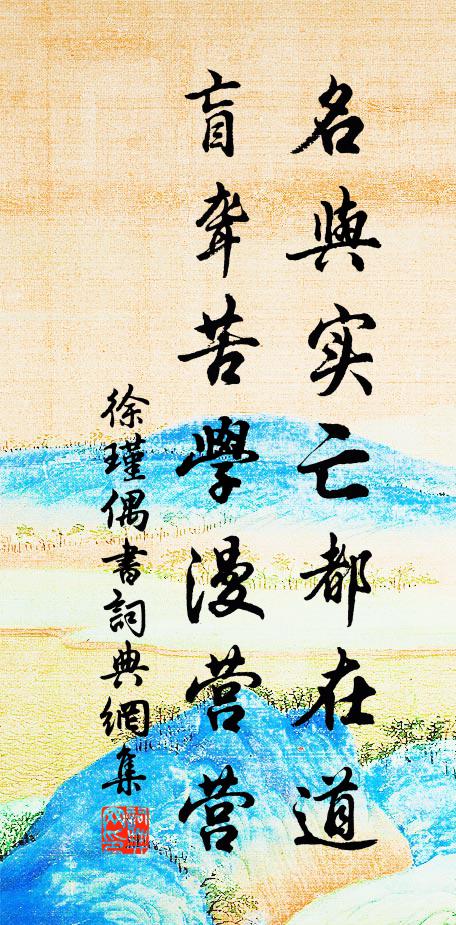 名與实亡都在道
盲聋苦學漫营营
徐瑾偶書詞典網集